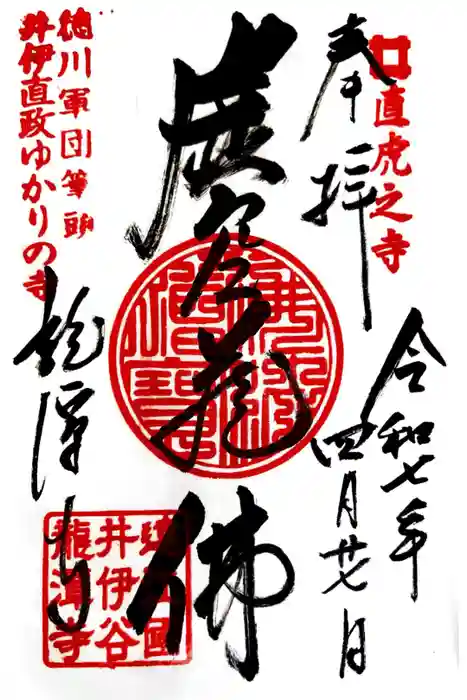 直虎之寺
奉拝
令和七年
四月廿七日
虚空蔵佛
佛法
僧寶
徳川軍団筆頭
井伊直政ゆかりの寺
龍潭寺
遠江國
井伊谷
龍潭寺